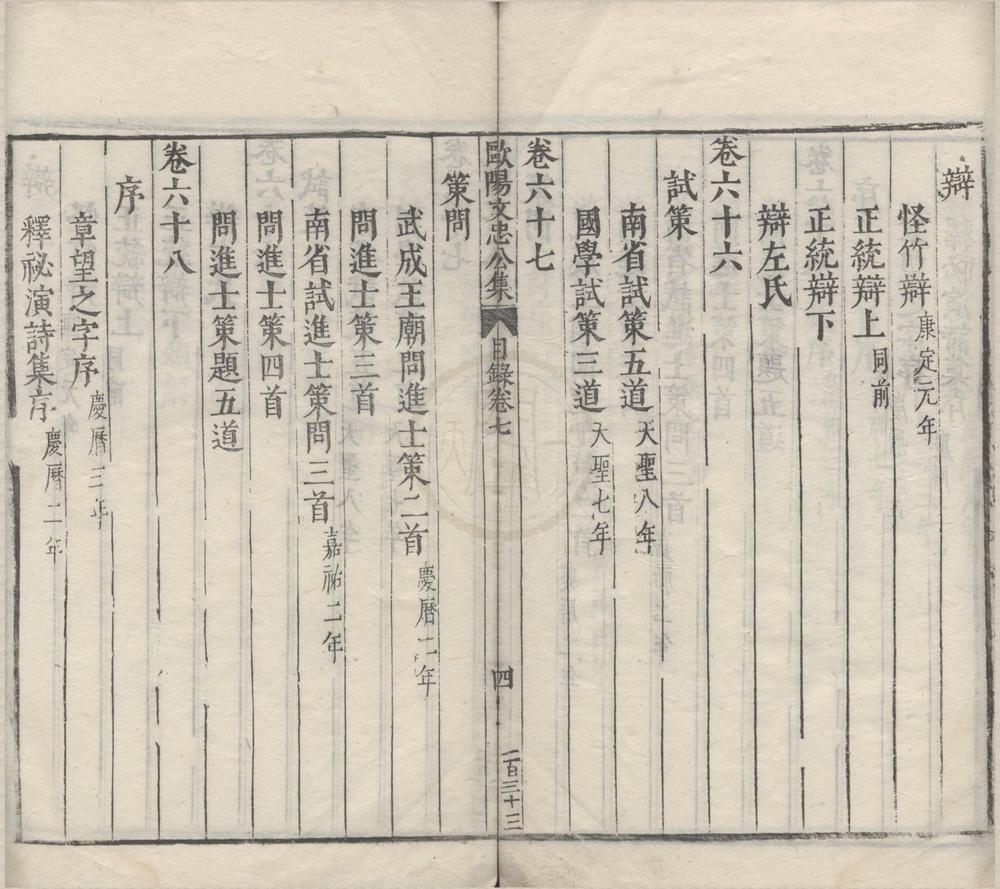 辯
怪竹辯 康定元年
正統辯上 同前
正統辯下
辯左氏
卷六十六
試策
南省試策五道 天聖八年
國學試策三道 天聖七年
卷六十七
歐陽文忠公集 目錄卷七 四 一百三十三
策問
武成王廟問進士策二首 慶曆二年
問進士策三首
南省試進士策問三首 嘉祐二年
問進士策四首
問進士策題五道
卷六十八
序
章望之字序 慶曆三年
釋祕演詩集序 慶曆二年